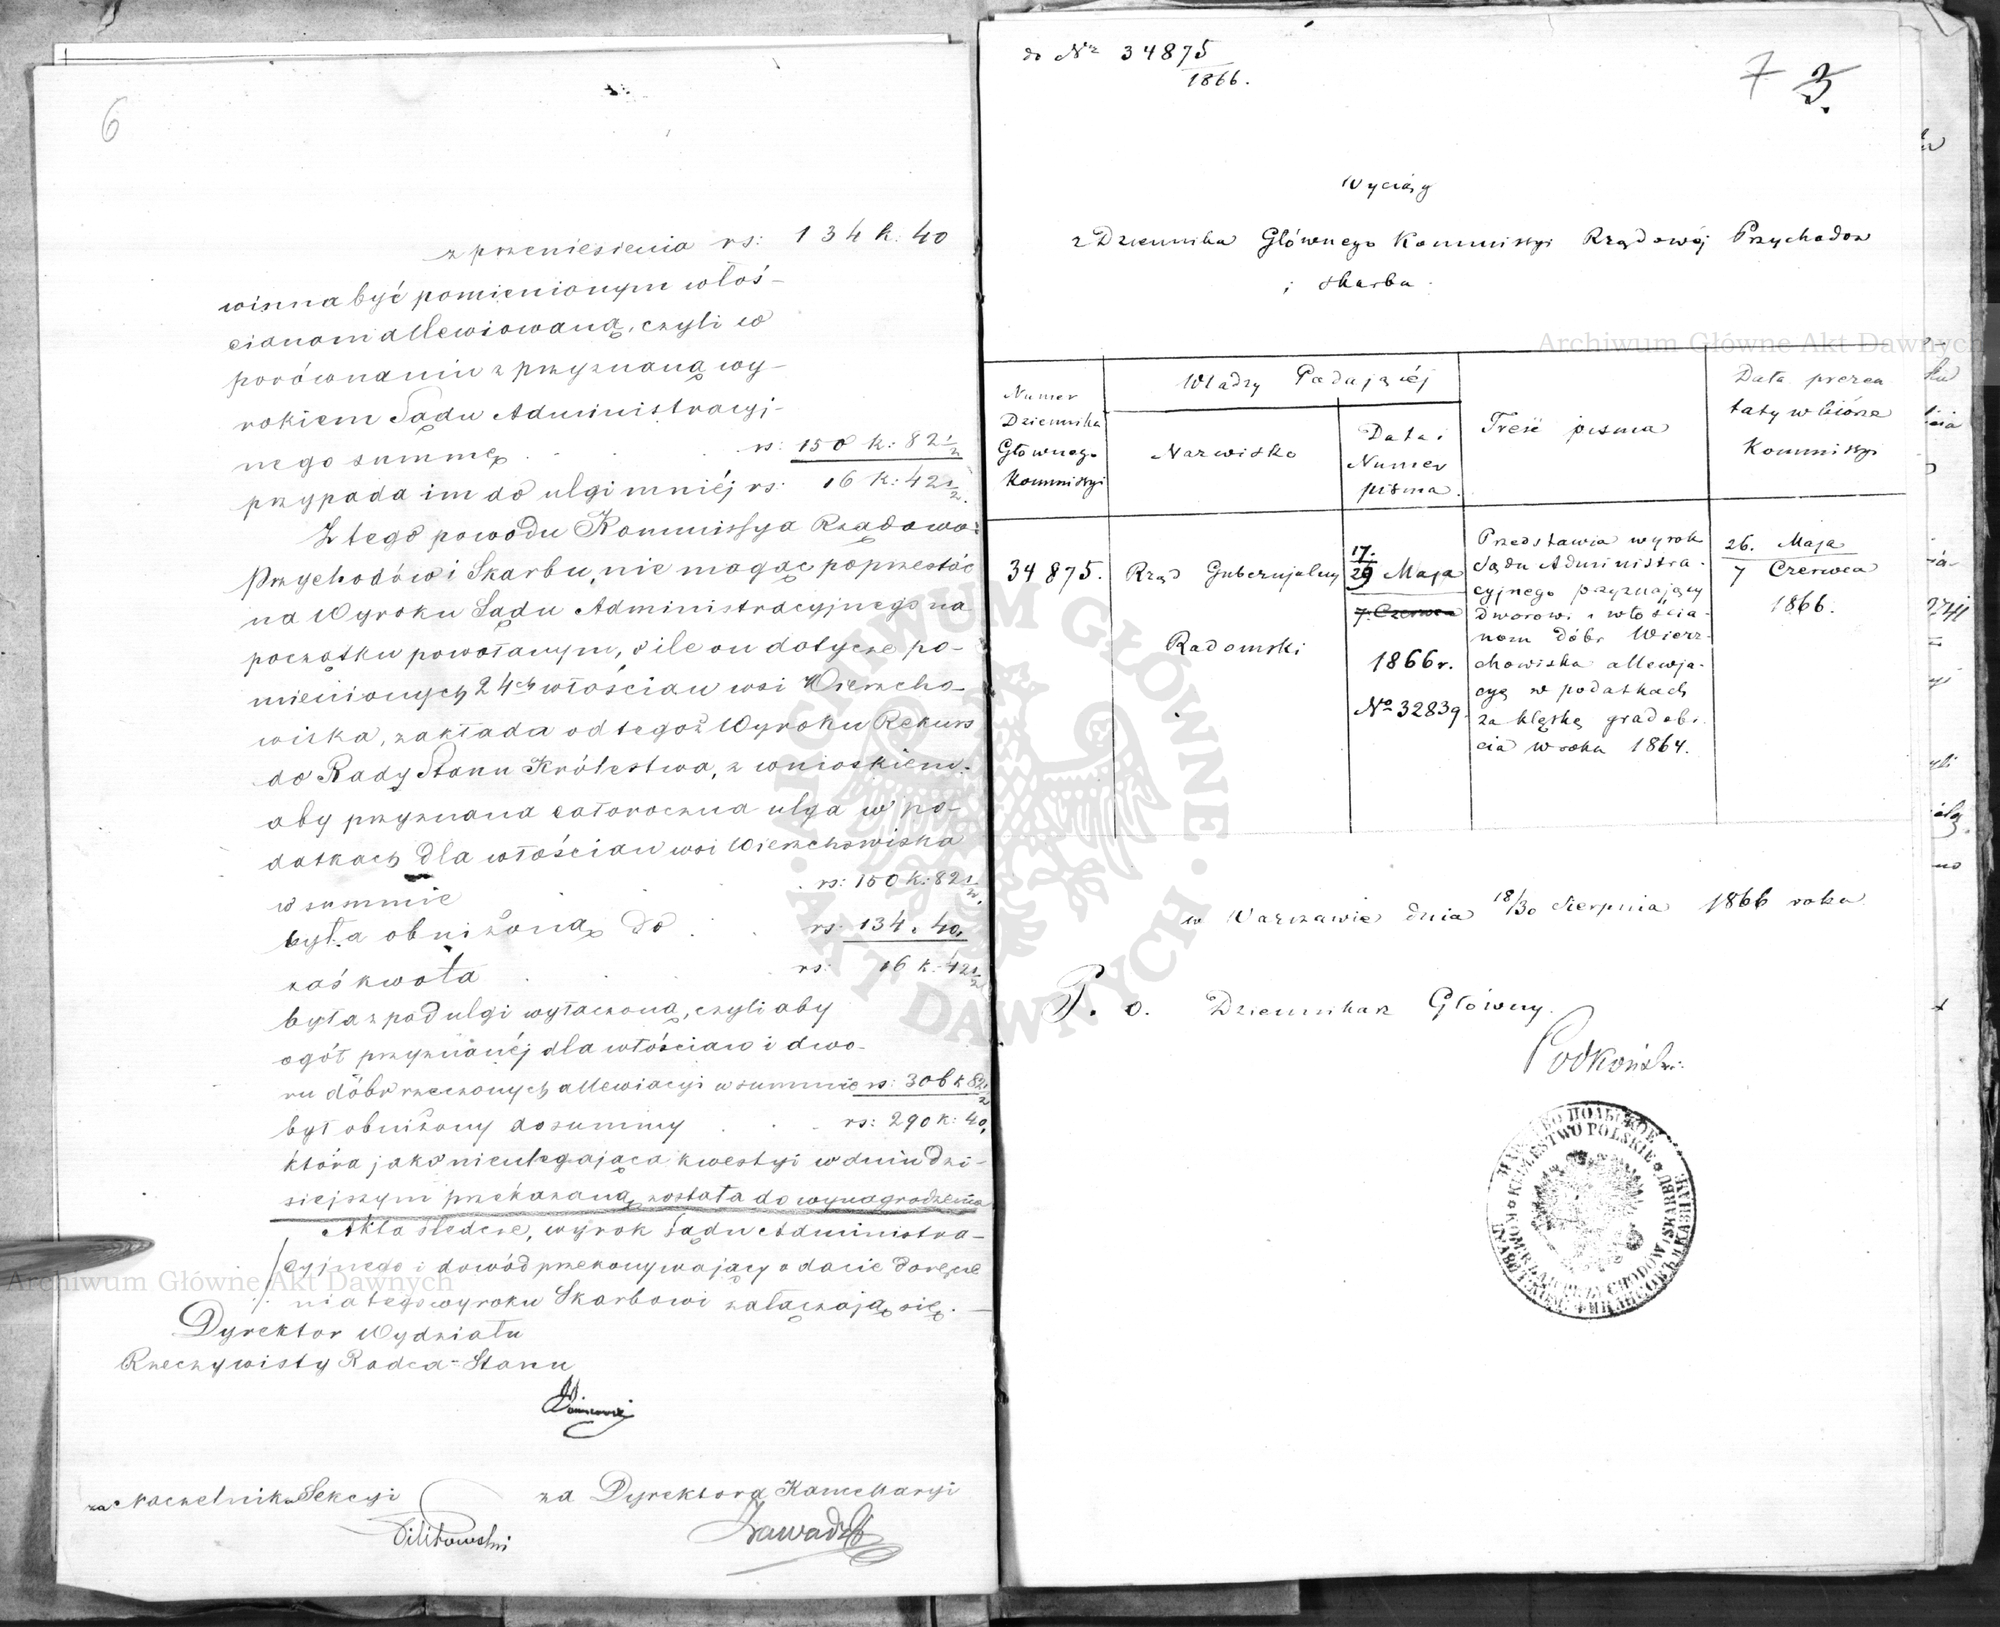 6
z przeniesienia rs: 134 k: 40
winna być pomienionym włoś-
cianom allewiowaną, czyli w
porównaniu z przyznaną wy-
rokiem Sądu Administracyj-
nego summę . . . rs: 150 k: 82 1/2
przypada im do ulgi mniéj rs: 16 k: 42 1/2.
Z tego powodu Kommissya Rządowa
Przychodów i Skarbu, nie mogąc poprzestać
na Wyroku Sądu Administracyjnego na
początku powołanym, o ile on dotycze po-
mienionych 24ch włościan wsi Wierzcho-
wiska, zakłada od tegoż Wyroku Rekurs
do Rady Stanu Królestwa, z wnioskiem:
aby przyznana całoroczna ulga w po-
datkach dla włościan wsi Wierzchowiska
w summie . rs: 150 k: 82 1/2,
była obniżoną do . . rs: 134 . 40,
zaś kwota . . . rs: 16 k: 42 1/2
była z pod ulgi wyłączoną, czyli aby
ogół przyznanéj dla włościan i dwo-
ru dóbr rzeczonych allewiacyi w summie rs: 306 k 82 1/2
był obniżony do summy . . . rs: 290 k: 40,
która jako nieulegająca kwestyi w dniu dzi-
siejszym przekazaną została do wynagrodzenia
Akta śledcze, wyrok Sądu Administra-
cyjnego i dowód przekonywający o dacie doręcze
nia tego wyroku Skarbowi załączają się. —
Dyrektor Wydziału
Rzeczywisty Radca-Stanu
za Naczelnika Sekcyi za Dyrektora Kancellaryi
Zawadzki
do Nr 34875/1866.
7 3.
Wyciąg
z Dziennika Głównego Kommissyi Rządowéj Przychodów
i Skarbu.
Numer Dziennika Głównego Kommissyi
Władzy Podającéj
Nazwisko
Data i Numer pisma.
Treść pisma
Data prezen
taty w biórze
Kommissyi
34875.
Rząd Gubernjalny
Radomski
17./29 Maja
7. Czerwca
1866 r.
No 32839.
Przedstawia wyrok
Sądu Administra-
cyjnego przyznający
dworowi i włościa-
nom dóbr Wierz-
chowiska allewja-
cyą w podatkach
za klęskę gradobi-
cia w roku 1864.
26. Maja
7 Czerwca
1866.
w Warszawie dnia 18/30 Sierpnia 1866 roku
P. o. Dziennikarz Główny.
KRÓLESTWO POLSKIE
Archiwum Główne Akt Dawnych
Archiwum Główne Akt Dawnych
ARCHIWUM GŁÓWNE · AKT DAWNYCH ·